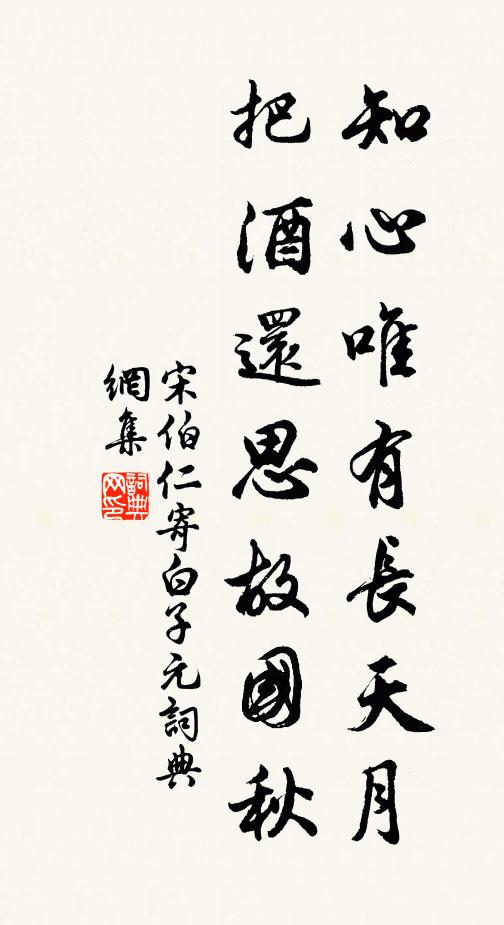 知心唯有長天月
把酒還思故國秋
宋伯仁寄白子元詞典
網集
詞典
网印